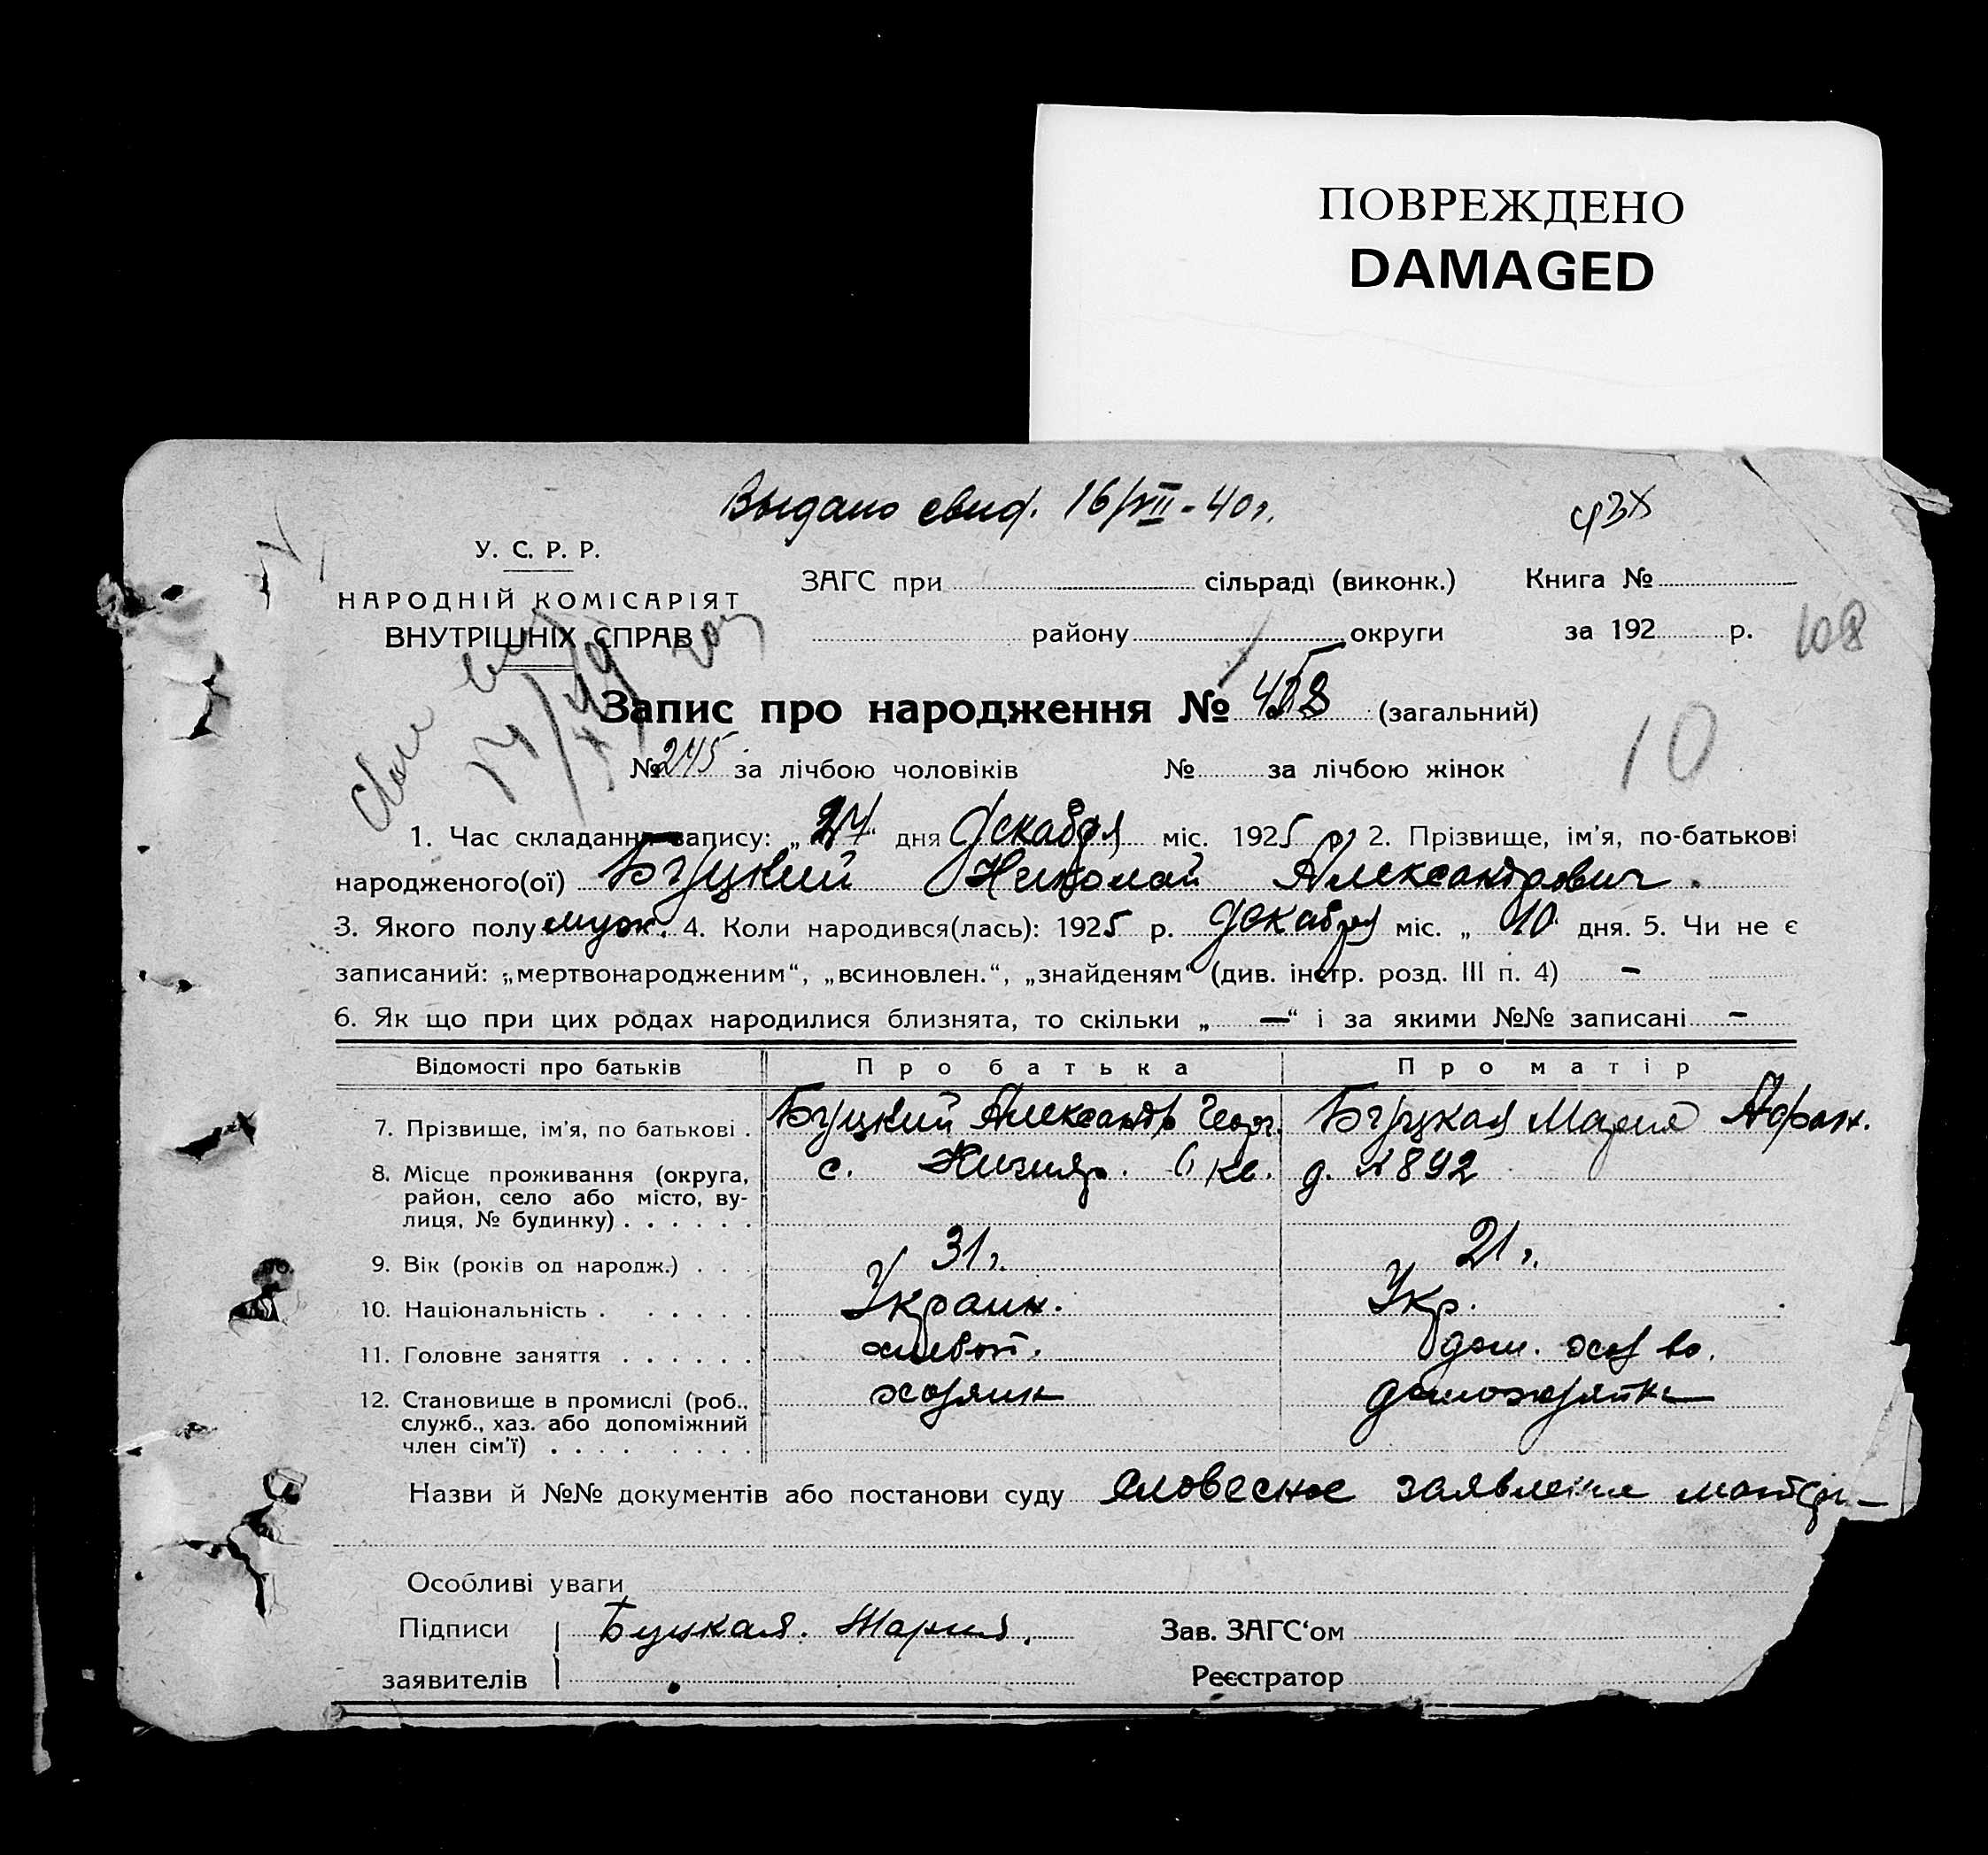 ПОВРЕЖДЕНО
DAMAGED
Выдано свид. 16/XII-40г.
У. С. Р. Р.
НАРОДНІЙ КОМІСАРІЯТ
ВНУТРІШНІХ СПРАВ
ЗАГС при сільраді (виконк.) Книга №
району округи за 192 р.
108
Запис про народження № 458 (загальний)
10
№ 245 за лічбою чоловіків № за лічбою жінок
1. Час складання запису: „24“ дня декабря міс. 1925 р. 2. Прізвище, ім'я, по-батькові
народженого(ої) Буцкий Николай Александрович.
3. Якого полу муж. 4. Коли народився(лась): 1925 р. декабря міс. „ 10 дня. 5. Чи не є
записаний: „мертвонародженим“, „всиновлен.“, „знайденям“ (див. інстр. розд. III п. 4) -
6. Як що при цих родах народилися близнята, то скільки „ — “ і за якими №№ записані -
Відомості про батьків Про батька Про матір
7. Прізвище, ім'я, по батькові . Буцкий Александр Георг. Буцкая Мария Афан.
8. Місце проживання (округа, с. кв. д. № 892
район, село або місто, ву-
лиця, № будинку) . . . . . .
9. Вік (років од народж.) . . . 31 г. 21 г.
10. Національність . . . . . . Украин. Укр.
11. Головне заняття . . . . . . дом. хоз во.
12. Становище в промислі (роб., хозяин домохозяйка
служб., хаз. або допоміжний
член сім'ї) . . . . . . . .
Назви й №№ документів або постанови суду словесное заявление матери -
Особливі уваги
Підписи Буцкая. Мария. Зав. ЗАГС'ом
заявителів Реєстратор